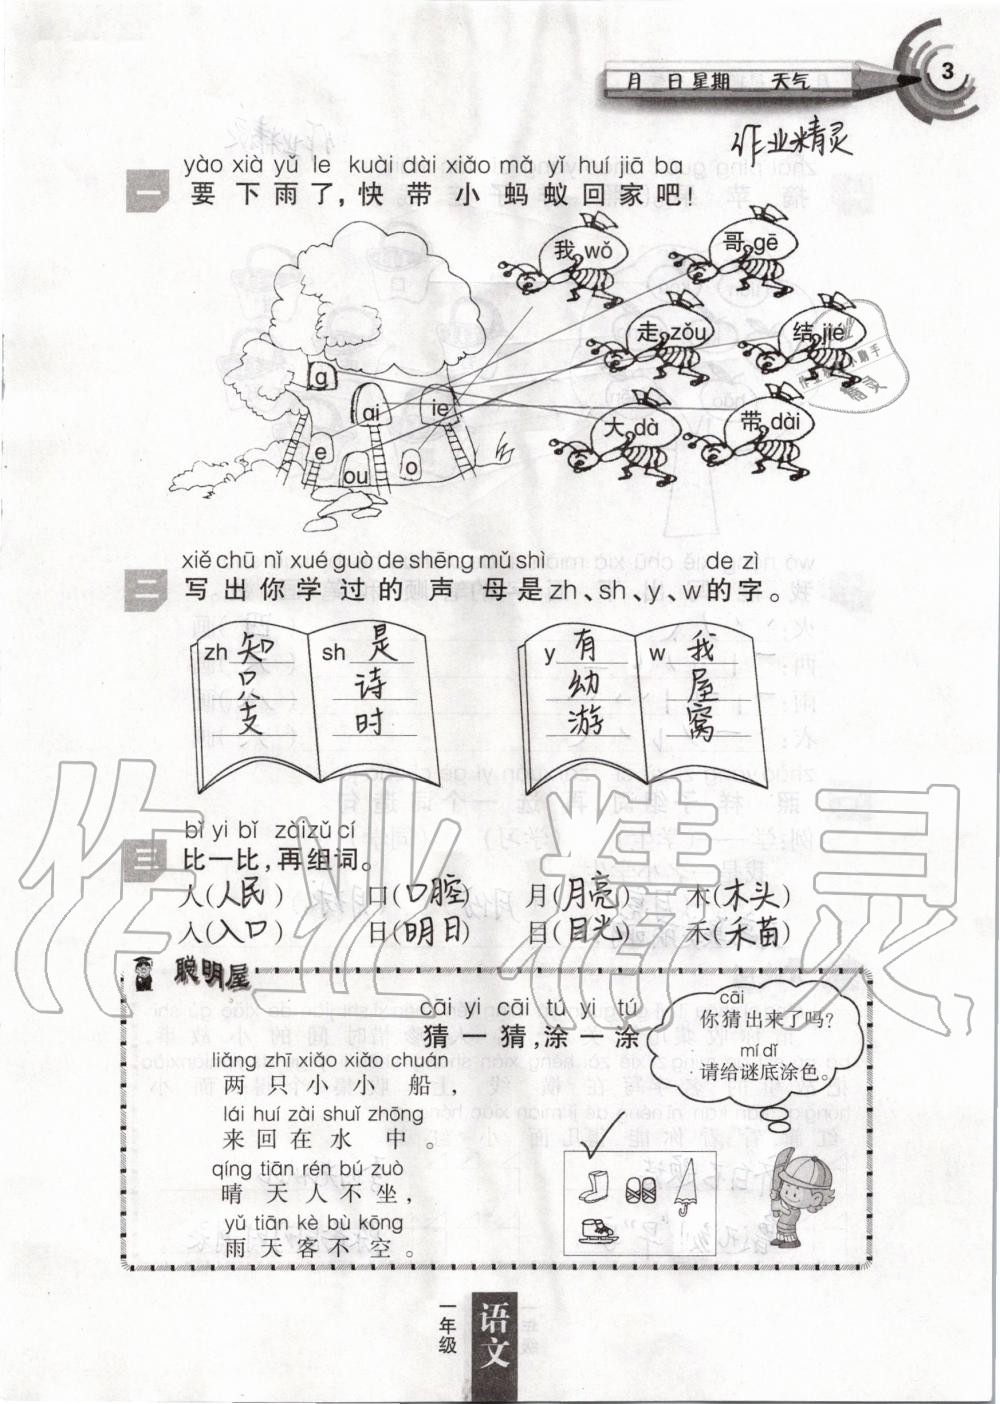 3
月 日 星期 天气
作业精灵
yào xià yǔ le kuài dài xiǎo mǎ yǐ huí jiā ba
一 要下雨了，快带小蚂蚁回家吧！
我 wǒ
哥 gē
走 zǒu
结 jié
大 dà
带 dài
a
ai
ie
e
ou
o
xiě chū nǐ xué guò de shēng mǔ shì de zì
二 写出你学过的声母是zh、sh、y、w的字。
zh 知 sh 是 y 有 w 我
只 诗 幼 屋
支 时 游 窝
bǐ yi bǐ zài zǔ cí
三 比一比，再组词。
人(人民) 口(口腔) 月(月亮) 木(木头)
入(入口) 日(明日) 目(目光) 禾(禾苗)
聪明屋
cāi yi cāi tú yi tú
猜一猜，涂一涂
liǎng zhī xiǎo xiǎo chuán
两只小小船，
lái huí zài shuǐ zhōng
来回在水中。
qíng tiān rén bú zuò
晴天人不坐，
yǔ tiān kè bù kōng
雨天客不空。
cāi
你猜出来了吗？
mí dǐ
请给谜底涂色。
一年级
语文
作业精灵